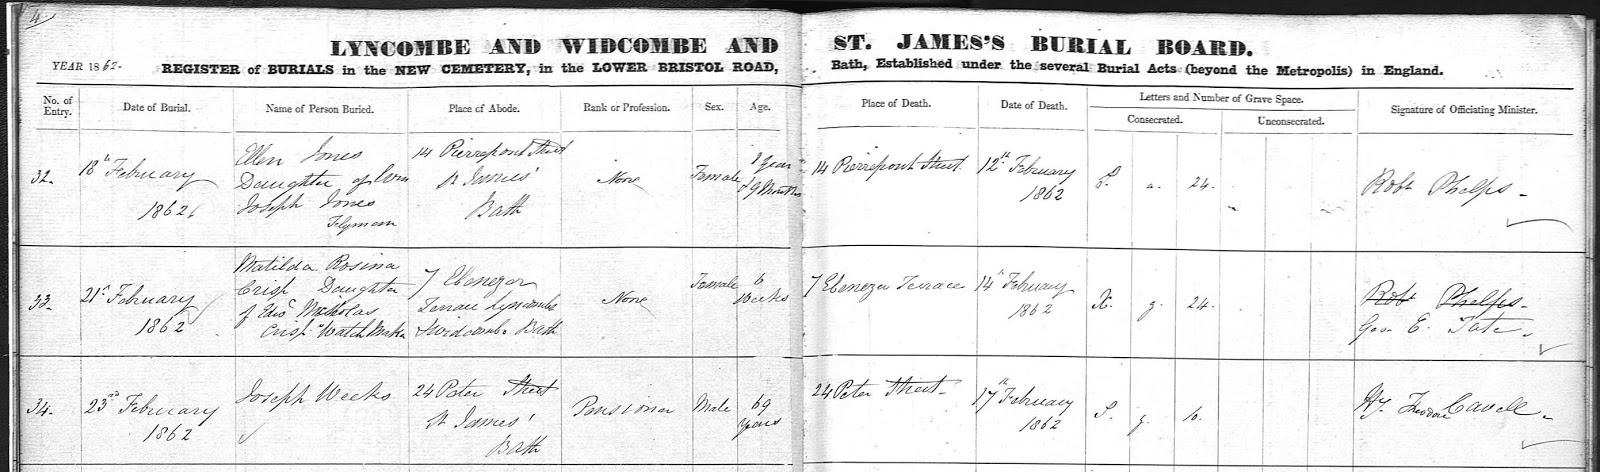 4
LYNCOMBE AND WIDCOMBE AND ST. JAMES'S BURIAL BOARD.
YEAR 1862.
REGISTER of BURIALS in the NEW CEMETERY, in the LOWER BRISTOL ROAD, Bath, Established under the several Burial Acts (beyond the Metropolis) in England.
No. of Entry. Date of Burial. Name of Person Buried. Place of Abode. Rank or Profession. Sex. Age. Place of Death. Date of Death. Letters and Number of Grave Space. Signature of Officiating Minister.
Consecrated. Unconsecrated.
32. 18th February 1862
Ellen Jones
Daughter of
Joseph Jones
Flyman
14 Pierrepont Street
St James'
Bath
None
Female
1 Year
& 9 Months
14 Pierrepont Street.
12th February
1862
a. 24.
Robt Phelps
33. 21st February
1862
Matilda Rosina
Crisp Daughter
of Edwd Nicholas
Crisp Watch Maker
7 Ebenezer
Terrace Lyncombe
& Widcombe Bath
None
Female
6
Weeks
7 Ebenezer Terrace
14th February
1862
X. g. 24.
Robt Phelps
Geo. E. Tate
34. 23rd February
1862
Joseph Weeks
24 Peter Street
St James'
Bath
Pensioner
Male
69
Years
24 Peter Street
17th February
1862
S. g. 16.
Hy. Theodore Cavell